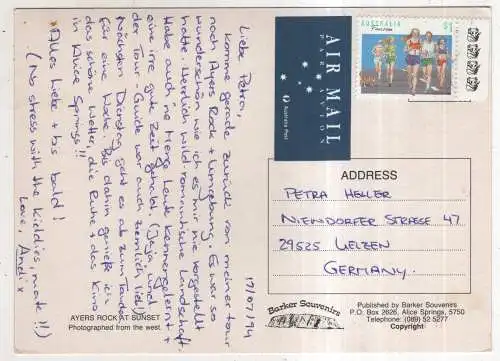 17/07/94
Liebe Petra,
komme gerade zurück von meiner Tour
nach Ayers Rock + Umgebung. Es war so
wunderschön wie ich es mir vorgestellt
hatte. Herrlich wild-romantische Landschaft.
Habe auch ne Menge Leute kennengelernt +
eine irre gute Zeit gehabt. (Jaja, und
der Tour-Guide war auch ziemlich lieb
Nächsten Dienstag geht es ab zum
für eine Woche. Bis dahin genieße ich
das schöne Wetter, die Ruhe + das Kino
in Alice Springs!!
*Alles Liebe + bis bald!
(No stress with the kiddies, mate!!)
Love, Andi x
AYERS ROCK AT SUNSET
Photographed from the west.
AIR MAIL
PAR AVION
Australia Post
AUSTRALIA $1
Fun run
ADDRESS
PETRA HELLER
NIENDORFER STRASSE 47
29525 UELZEN
GERMANY
Barker Souvenirs
Published by Barker Souvenirs
P.O. Box 2626, Alice Springs, 5750
Telephone: (089) 52 5277
Copyright